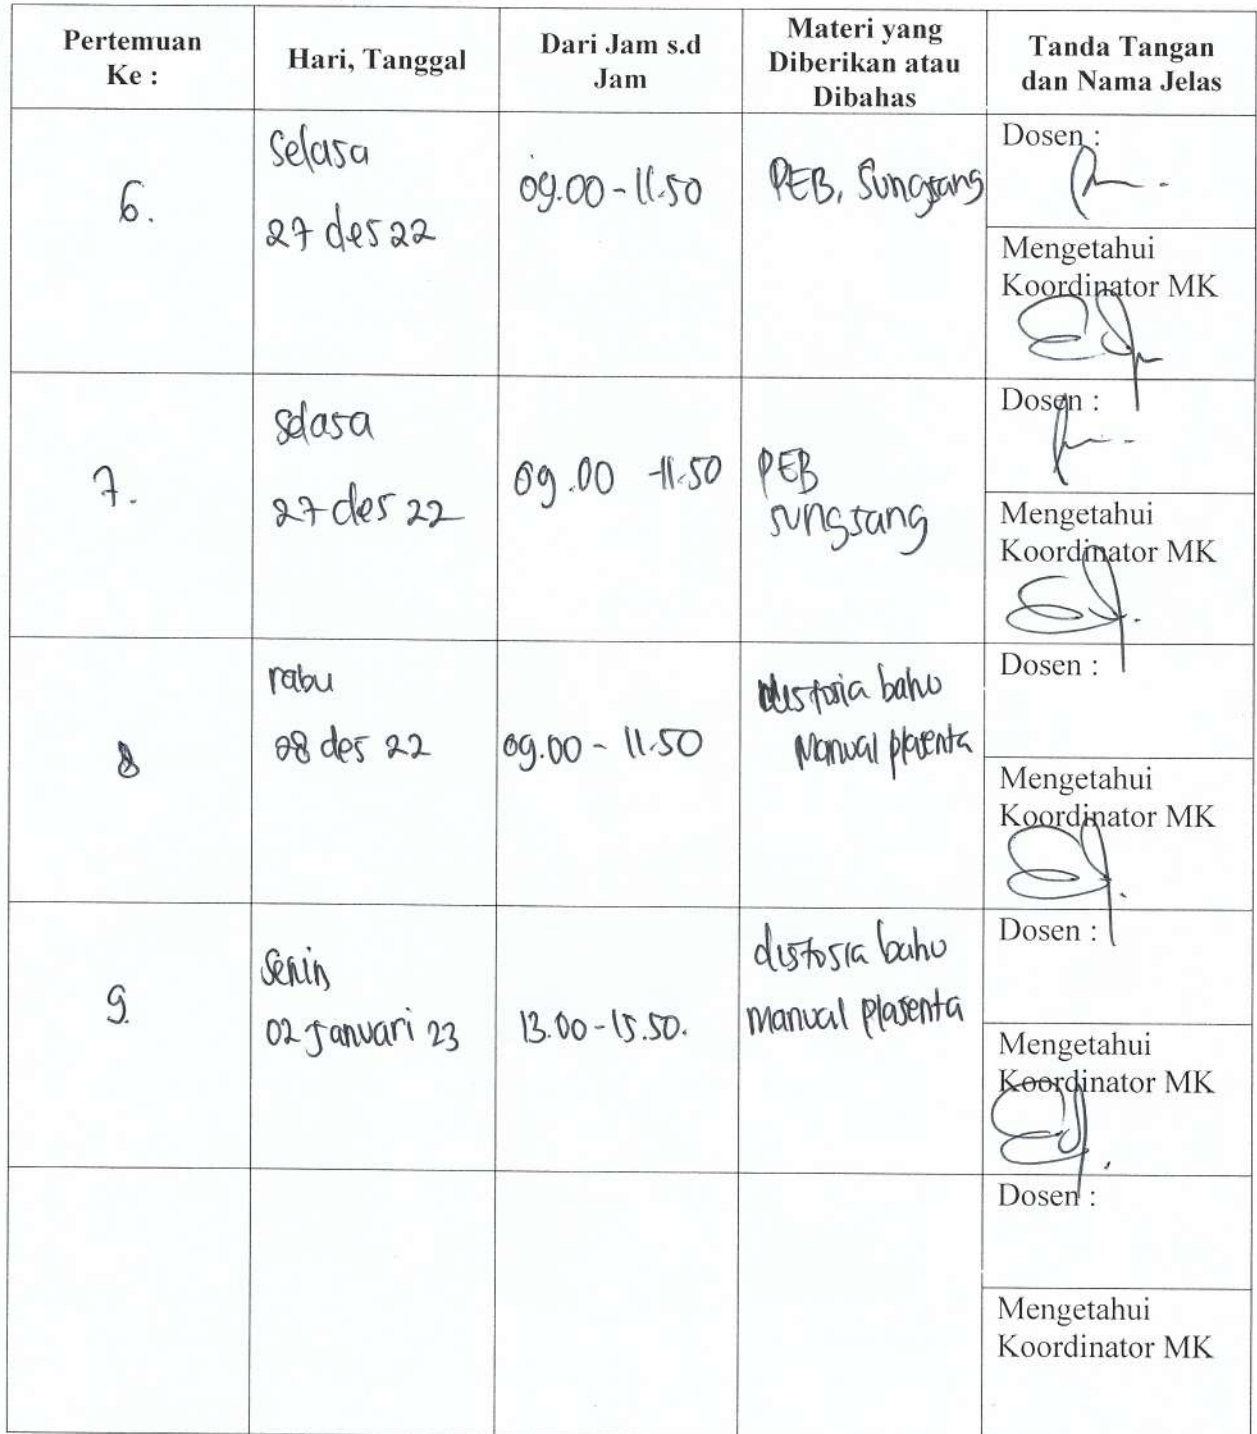 Pertemuan
Ke :
Hari, Tanggal
Dari Jam s.d
Jam
Materi yang
Diberikan atau
Dibahas
Tanda Tangan
dan Nama Jelas
6.
Selasa
27 des 22
09.00 - 11.50
PEB, Sungsang
Dosen :
Mengetahui
Koordinator MK
7.
selasa
27 des 22
09.00 - 11.50
PEB
sungsang
Dosen :
Mengetahui
Koordinator MK
8
rabu
28 des 22
09.00 - 11.50
distosia bahu
Manual plasenta
Dosen :
Mengetahui
Koordinator MK
9.
Senin
02 Januari 23
13.00 - 15.50.
distosia bahu
manual plasenta
Dosen :
Mengetahui
Koordinator MK
Dosen :
Mengetahui
Koordinator MK